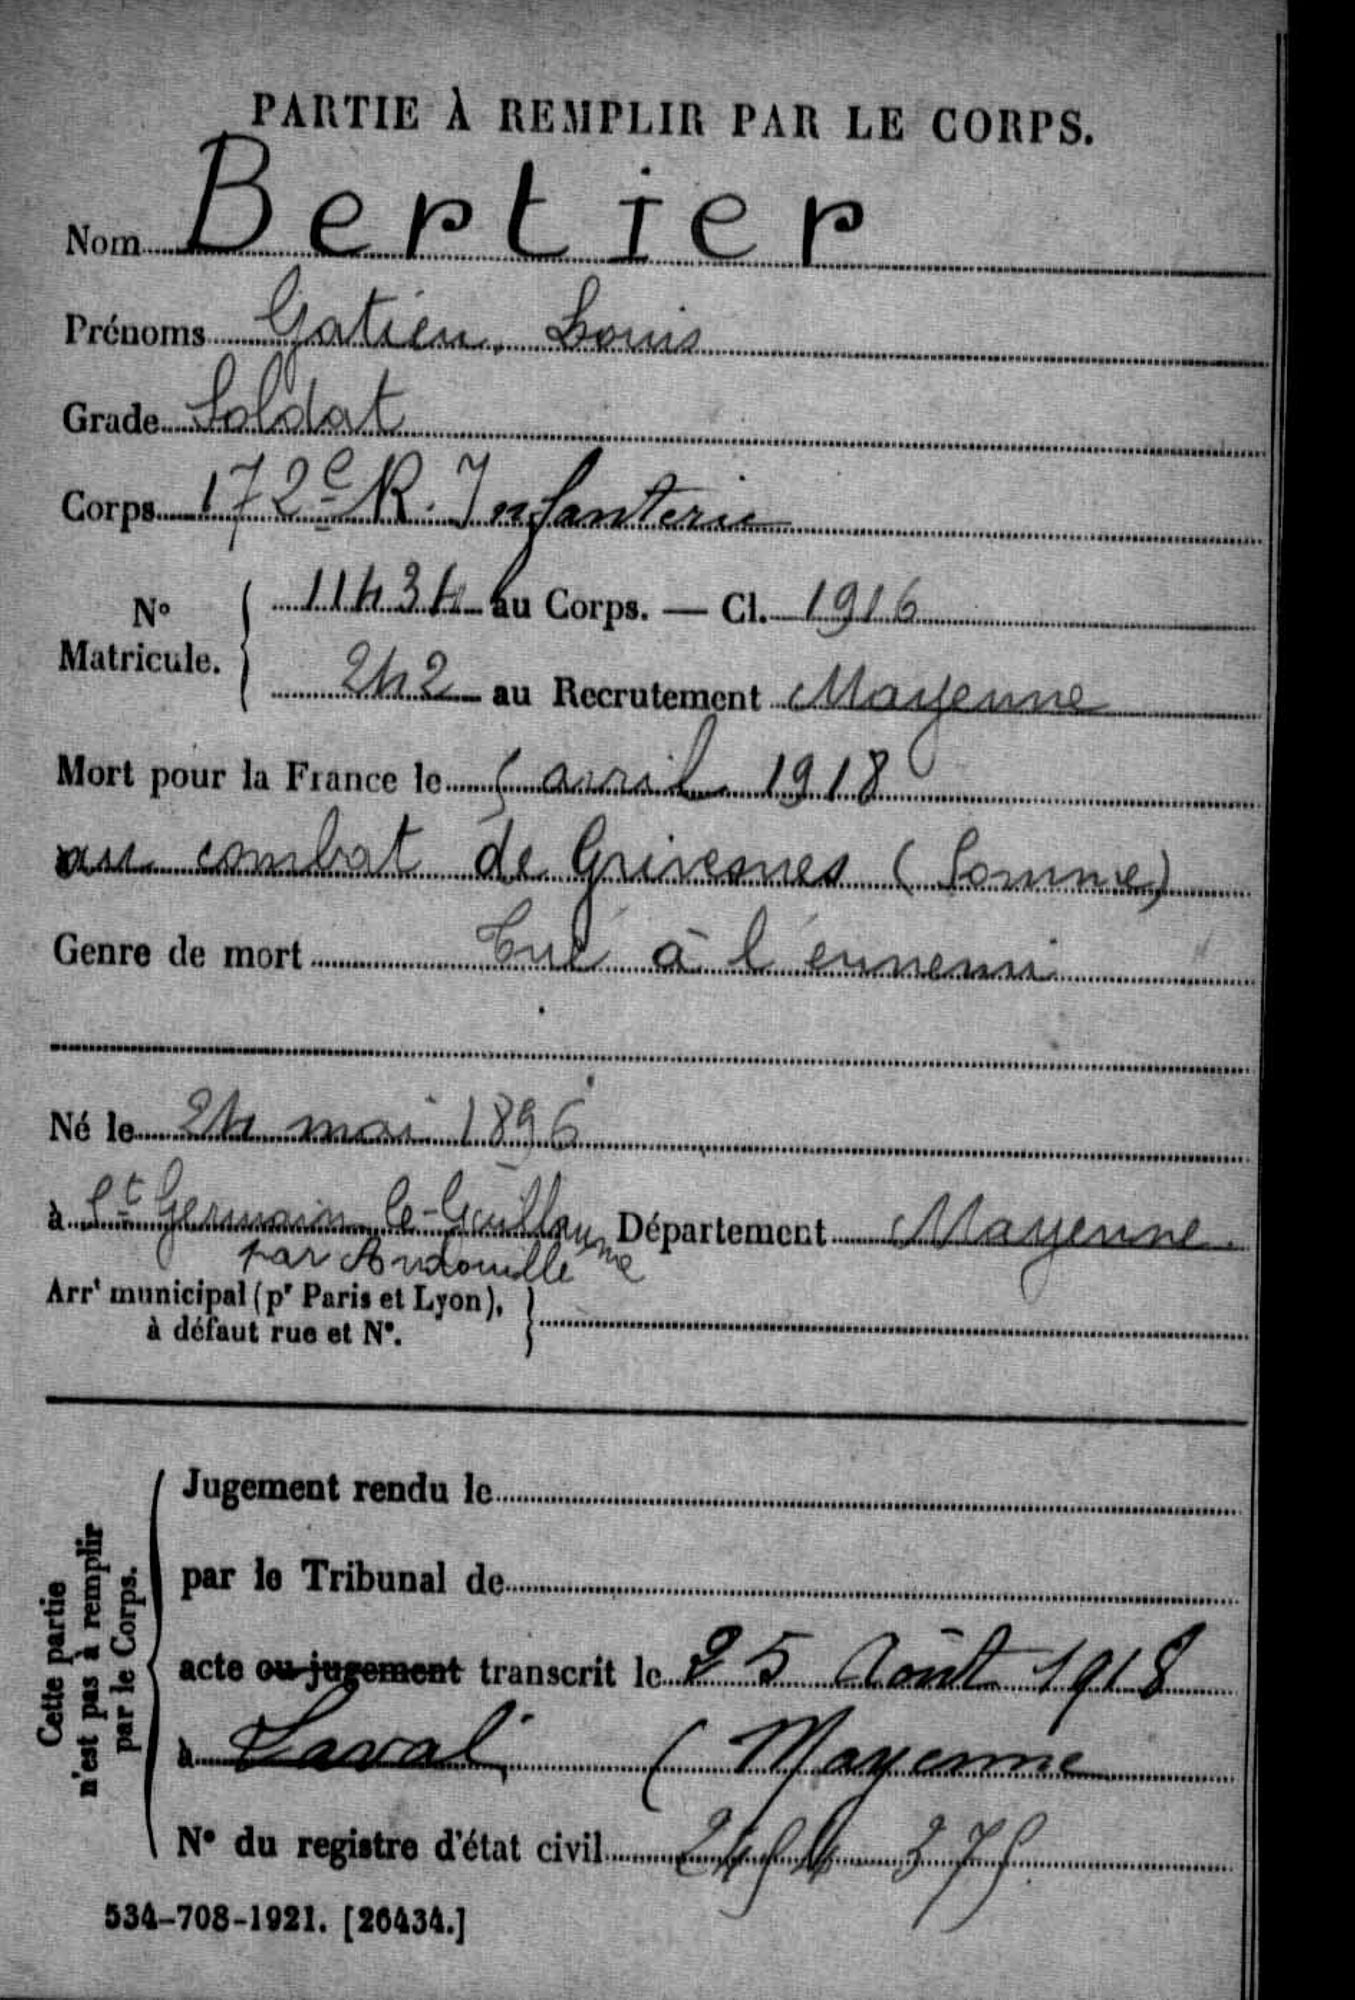 PARTIE À REMPLIR PAR LE CORPS.
Nom Bertier
Prénoms Gatien, Louis
Grade Soldat
Corps 172e R. Infanterie
N° Matricule. { 11434 au Corps. — Cl. 1916
242 au Recrutement Mayenne
Mort pour la France le 5 avril 1918
au combat de Grivesnes (Somme)
Genre de mort Tué à l'ennemi
Né le 24 mai 1896
à St Germain le-Guillaume Département Mayenne
par Andouillé
Arrt municipal (pr Paris et Lyon), }
à défaut rue et N°.
Cette partie
n'est pas à remplir
par le Corps.
Jugement rendu le
par le Tribunal de
acte ou jugement transcrit le 25 Août 1918
à Laval (Mayenne
N° du registre d'état civil
534-708-1921. [26434.]